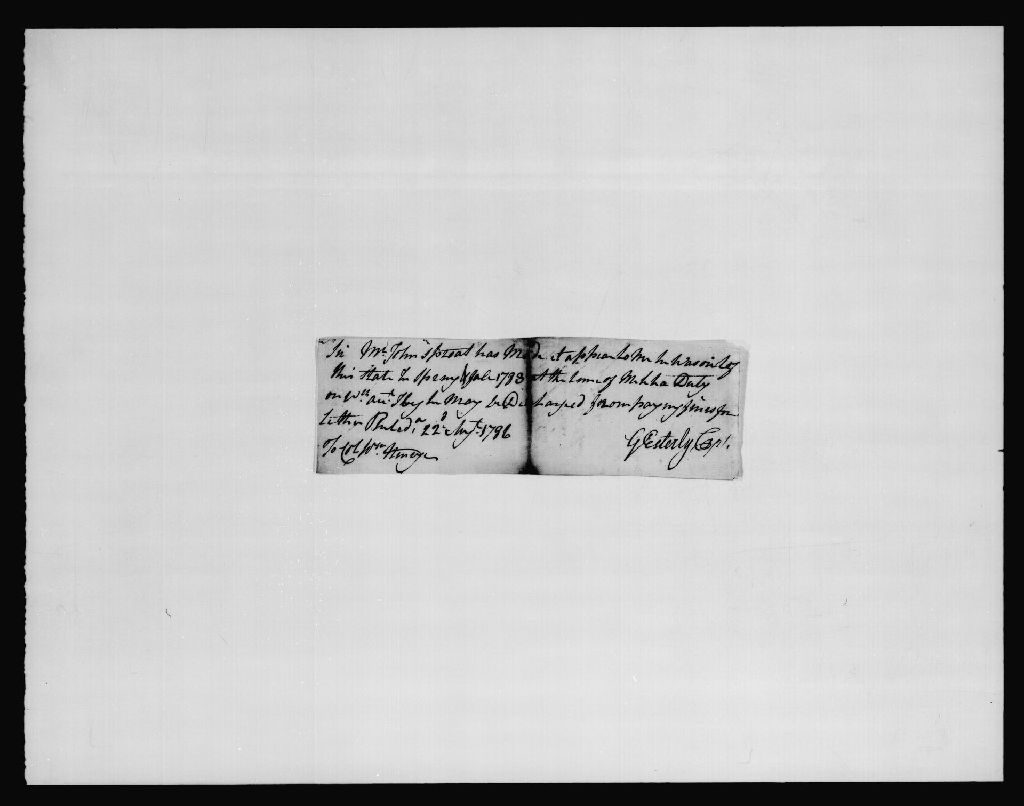 Sir Mr. John Sproat has Made it appear to Me he was out of
this State in Spring & fale 1783 at the time of Militia Duty
on wch. acct. I beg he may be Discharged from paying fines for
Either Philad.a 22d Augt. 1786
G Esterly Capt.
To Col. Wm. Henry